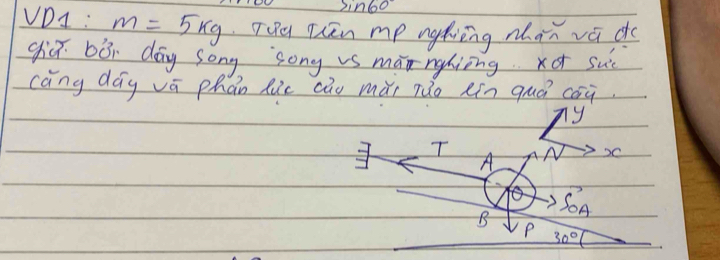 sin60
VD1: m = 5kg. Tựa trên mp nghiêng nhẵn và đc
giữ bởi dây song song vs mặt nghiêng. xđ sức
căng dây và phản lực của mặt tựa lên quả cầu.
y
T
A
N
x
O
S⃗OA
B
P
30°